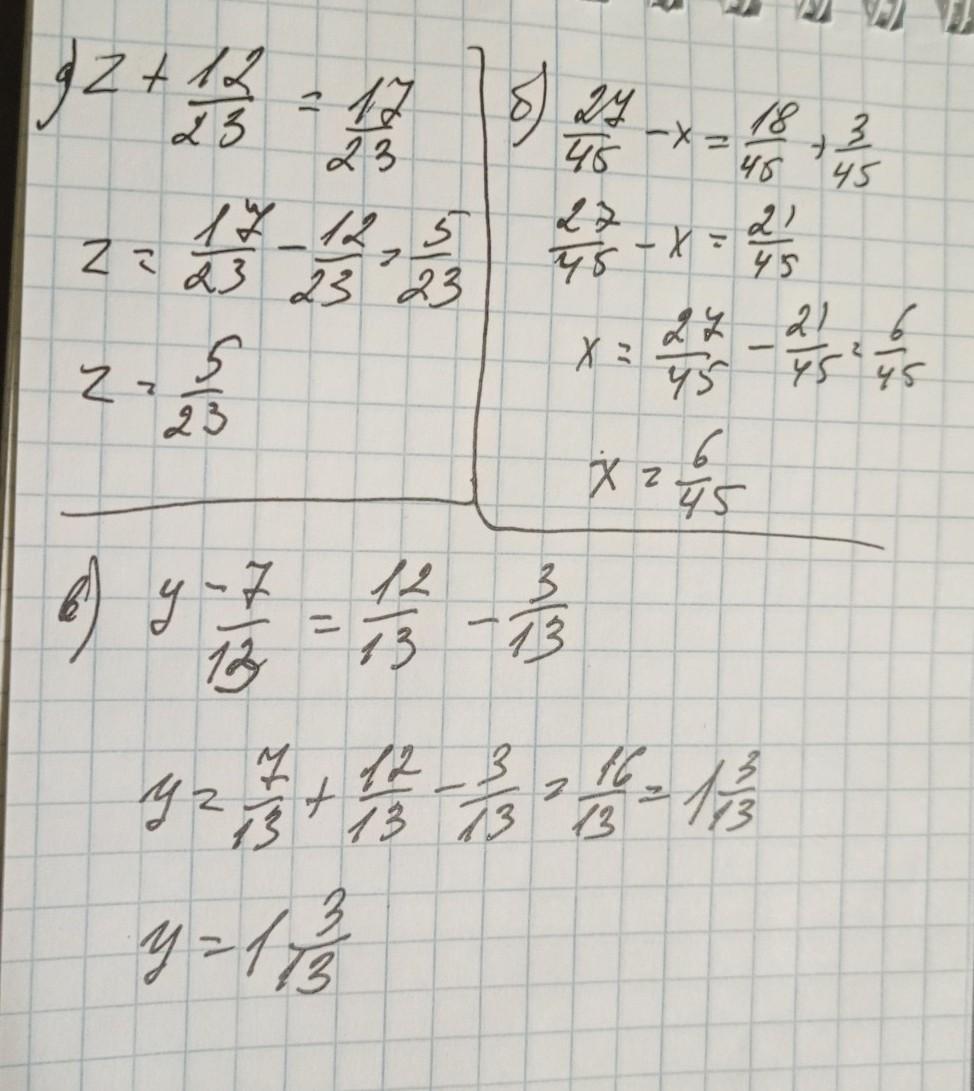 а) z + 12/23 = 17/23
z = 17/23 - 12/23 = 5/23
z = 5/23
б) 27/45 - x = 18/45 + 3/45
27/45 - x = 21/45
x = 27/45 - 21/45 = 6/45
x = 6/45
в) y - 7/13 = 12/13 - 3/13
y = 7/13 + 12/13 - 3/13 = 16/13 = 1 3/13
y = 1 3/13